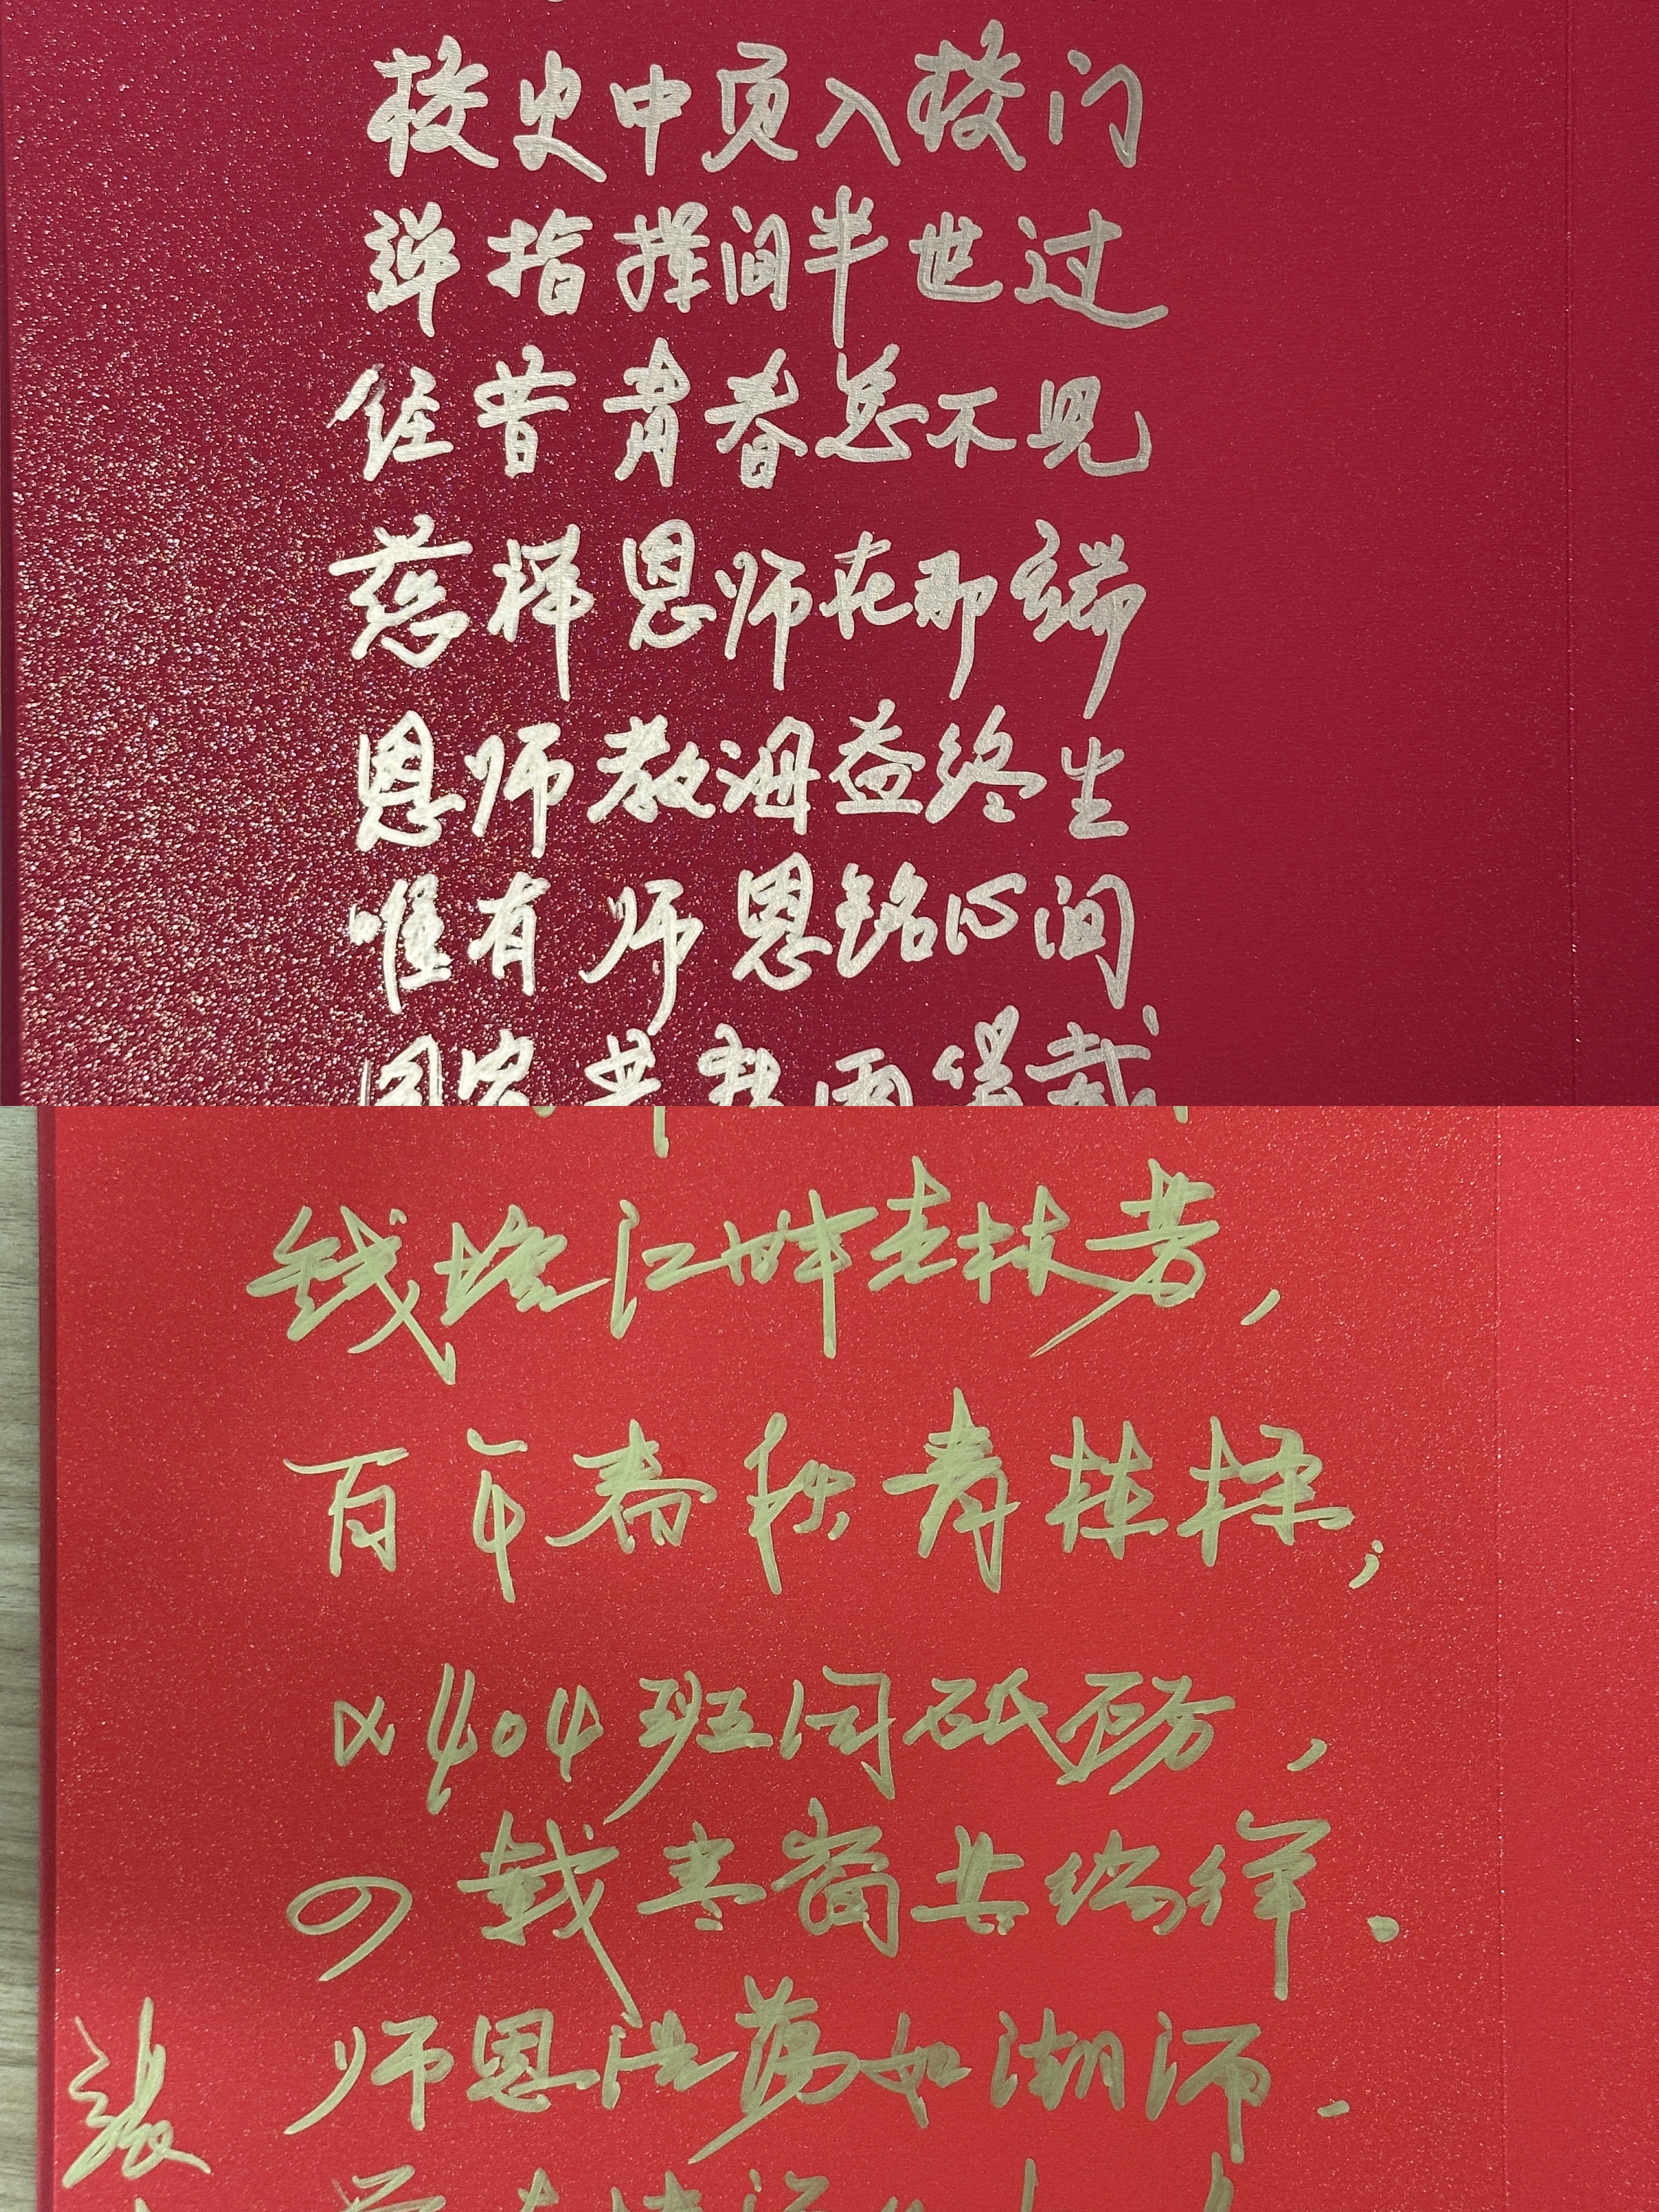 校史中页入校门
弹指挥间半世过
往昔青春总不见
慈祥恩师在那端
恩师教诲益终生
唯有师恩铭心间
同窗共
钱塘江畔杏林芳,
百年春秋育栋梁;
α404班同砥砺,
四载寒窗共编绎.
师恩浩荡如潮